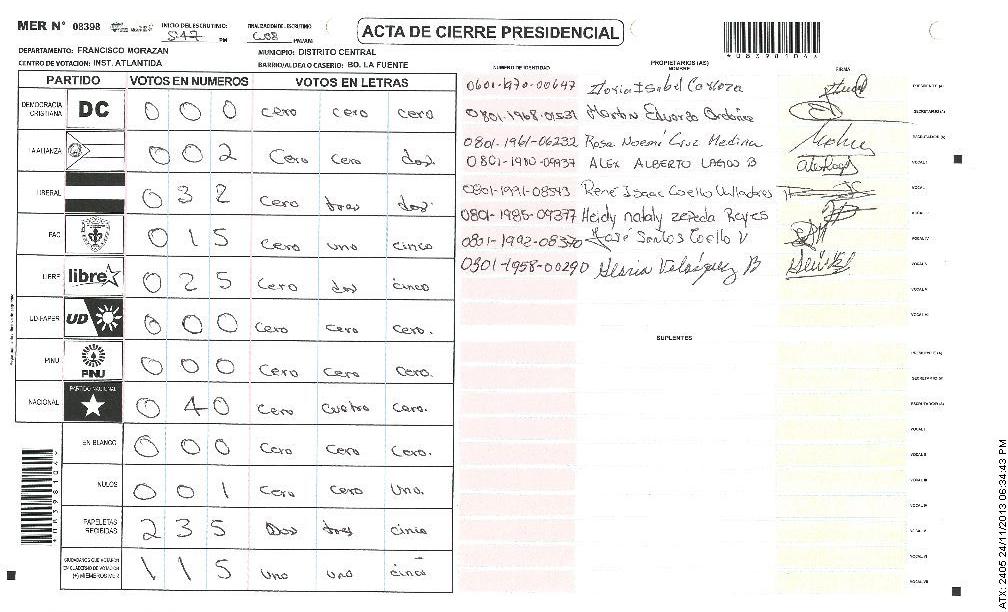 MER N° 08398
INICIO DEL ESCRUTINIO: 5:47 PM
FINALIZACION DEL ESCRUTINIO 6:08 PM/AM
ACTA DE CIERRE PRESIDENCIAL
*08398104*
DEPARTAMENTO: FRANCISCO MORAZAN
MUNICIPIO: DISTRITO CENTRAL
CENTRO DE VOTACION: INST. ATLANTIDA
BARRIO/ALDEA O CASERIO: BO. LA FUENTE
PARTIDO VOTOS EN NUMEROS VOTOS EN LETRAS
DEMOCRACIA CRISTIANA DC 0 0 0 cero cero cero
LA ALIANZA 0 0 2 Cero Cero dos
LIBERAL 0 3 2 cero tres dos
PAC 0 1 5 Cero uno cinco
LIBRE libre 0 2 5 Cero dos cinco
UD-FAPER UD 0 0 0 Cero Cero Cero.
PINU PINU 0 0 0 Cero Cero Cero.
NACIONAL PARTIDO NACIONAL 0 4 0 Cero Cuatro Cero.
EN BLANCO 0 0 0 Cero Cero Cero.
NULOS 0 0 1 Cero Cero Uno.
PAPELETAS RECIBIDAS 2 3 5 Dos tres cinco
CIUDADANOS QUE VOTARON EN CUADERNO DE VOTACION (+) MIEMBROS MER 1 1 5 uno uno cinco
PROPIETARIOS (AS)
NUMERO DE IDENTIDAD NOMBRE FIRMA
0601-1970-00647 Maria Isabel Cardoza PRESIDENTE (A)
0801-1968-01531 Marlon Eduardo Ordoñez SECRETARIO (A)
0801-1961-06232 Rosa Noemí Cruz Medina ESCRUTADOR (A)
0801-1980-09937 ALEX ALBERTO LAGOS B VOCAL I
0801-1991-08543 René Isaac Coello Valladares VOCAL II
0801-1985-09377 Heidy nataly zepeda Reyes VOCAL III
0801-1992-08370 José Santos Coello V VOCAL IV
0301-1958-00290 Gloria Velásquez B VOCAL V
VOCAL VI
VOCAL VII
SUPLENTES
PRESIDENTE (A)
SECRETARIO (A)
ESCRUTADOR (A)
VOCAL I
VOCAL II
VOCAL III
VOCAL IV
VOCAL V
VOCAL VI
VOCAL VII
ATX: 2405 24/11/2013 06:34:43 PM